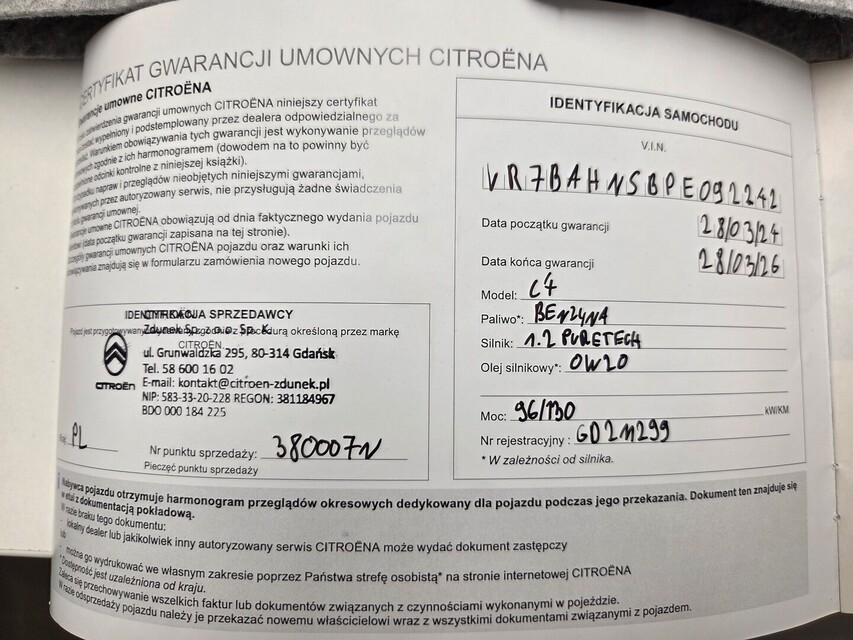 CERTYFIKAT GWARANCJI UMOWNYCH CITROËNA
umowne CITROËNA
gwarancji umownych CITROËNA niniejszy certyfikat
wypełniony i podstemplowany przez dealera odpowiedzialnego za
Warunkiem obowiązywania tych gwarancji jest wykonywanie przeglądów
zgodnie z ich harmonogramem (dowodem na to powinny być
odcinki kontrolne z niniejszej książki).
napraw i przeglądów nieobjętych niniejszymi gwarancjami,
przez autoryzowany serwis, nie przysługują żadne świadczenia
gwarancji umownej.
umowne CITROËNA obowiązują od dnia faktycznego wydania pojazdu
(data początku gwarancji zapisana na tej stronie).
gwarancji umownych CITROËNA pojazdu oraz warunki ich
znajdują się w formularzu zamówienia nowego pojazdu.
IDENTYFIKACJA SPRZEDAWCY
Zdunek Sp. z o.o. Sp. K.
procedurą określoną przez markę
CITROËN
ul. Grunwaldzka 295, 80-314 Gdańsk
Tel. 58 600 16 02
CITROËN
E-mail: kontakt@citroen-zdunek.pl
NIP: 583-33-20-228 REGON: 381184967
BDO 000 184 225
PL
Nr punktu sprzedaży: 380007N
Pieczęć punktu sprzedaży
IDENTYFIKACJA SAMOCHODU
V.I.N.
VR7BAHNSBPE092242
Data początku gwarancji 28/03/24
Data końca gwarancji 28/03/26
Model: C4
Paliwo*: BENZYNA
Silnik: 1.2 PURETECH
Olej silnikowy*: 0W20
Moc: 96/130 kW/KM
Nr rejestracyjny : GD2M299
* W zależności od silnika.
Nabywca pojazdu otrzymuje harmonogram przeglądów okresowych dedykowany dla pojazdu podczas jego przekazania. Dokument ten znajduje się
w etui z dokumentacją pokładową.
W razie braku tego dokumentu:
- lokalny dealer lub jakikolwiek inny autoryzowany serwis CITROËNA może wydać dokument zastępczy
lub
- można go wydrukować we własnym zakresie poprzez Państwa strefę osobistą* na stronie internetowej CITROËNA
* Dostępność jest uzależniona od kraju.
Zaleca się przechowywanie wszelkich faktur lub dokumentów związanych z czynnościami wykonanymi w pojeździe.
W razie odsprzedaży pojazdu należy je przekazać nowemu właścicielowi wraz z wszystkimi dokumentami związanymi z pojazdem.